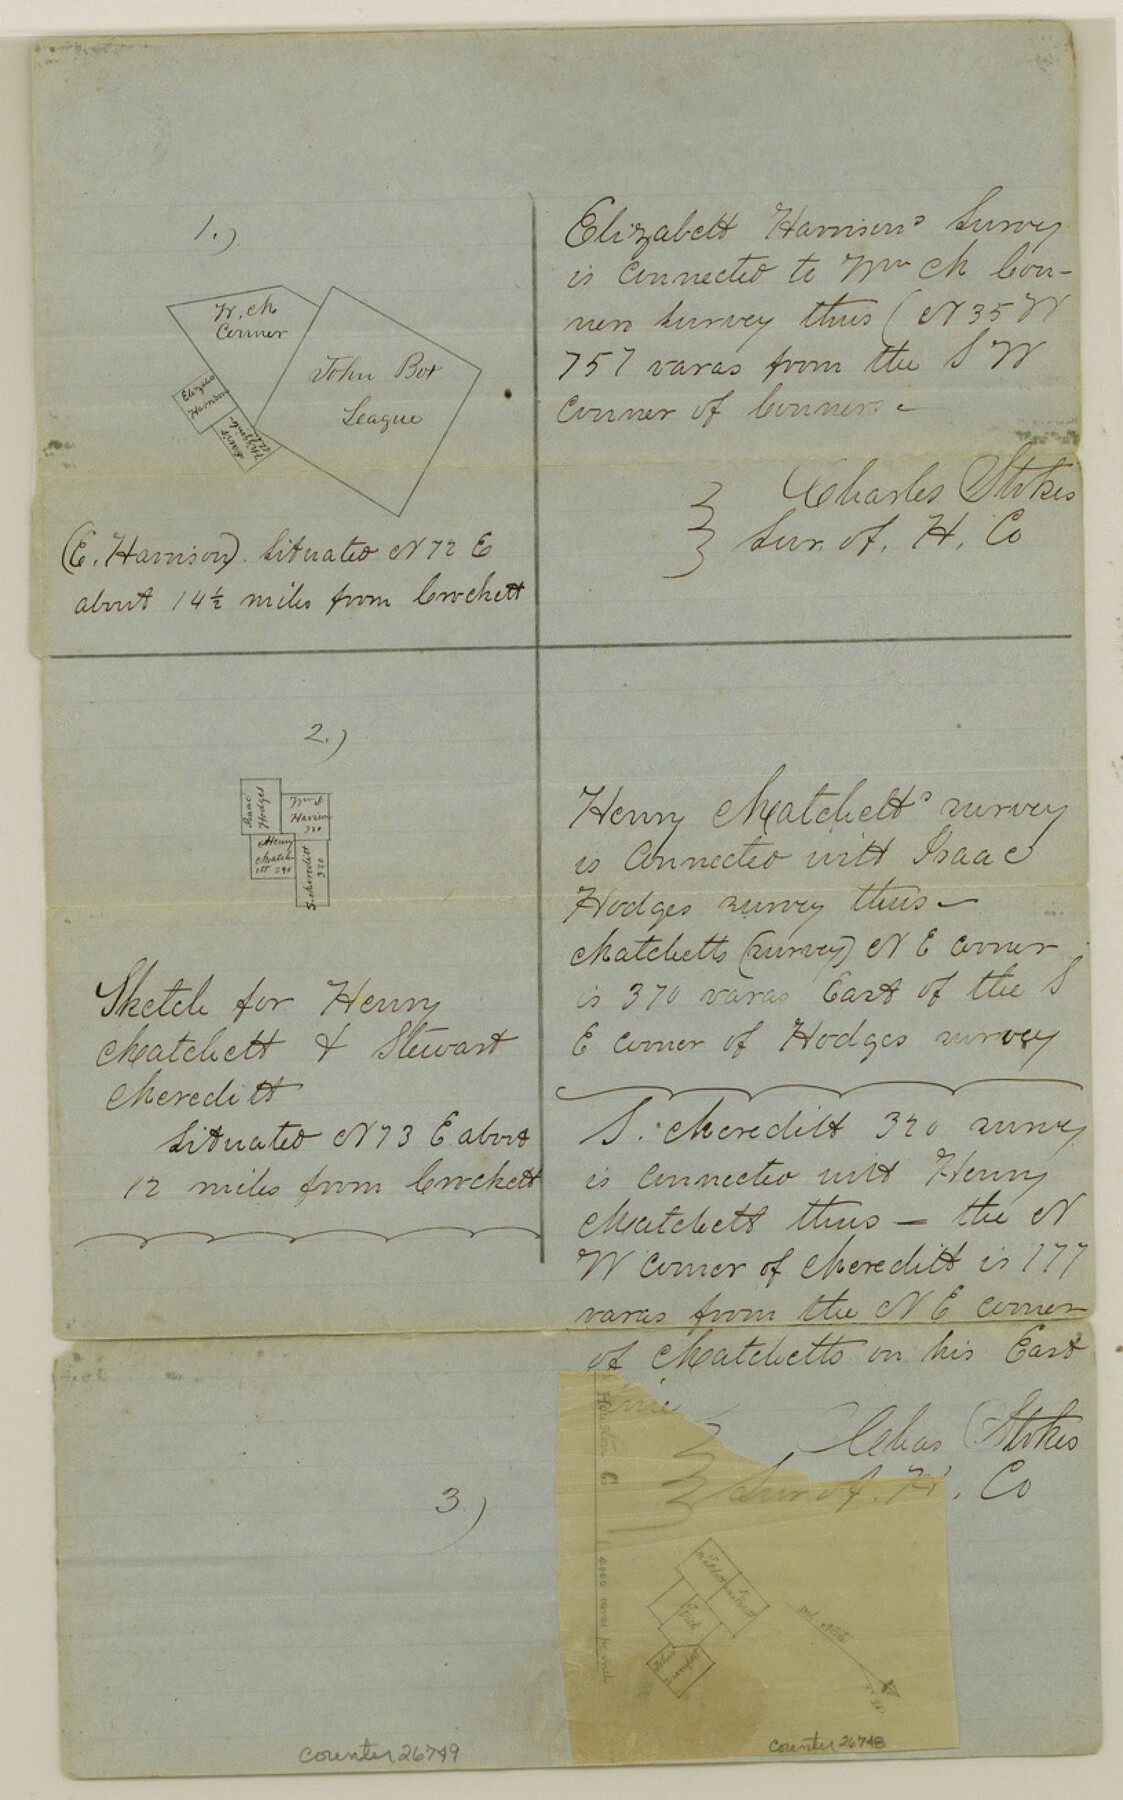 1.)
W. M
Conner
John Box
League
Elizabth
Harrison
(E. Harrison). Situated N 72 E
about 14½ miles from Crockett
Elizabeth Harrison's Survey
is connected to Wm M Con-
ners survey thus (N 35 W
757 varas from the S W
Corner of Conners.-
Charles Stokes
Sur. of. H. Co
2.)
Isaac
Hodges
Harrison
320
Henry
Match-
ett 290
S. Meredith
320
Sketch for Henry
Matchett & Stewart
Meredith
Situated N 73 E about
12 miles from Crockett
Henry Matchett's survey
is connected with Isaac
Hodges survey thus—
Matchetts (survey) N E corner
is 370 varas East of the S
E corner of Hodges survey
S. Meredith 320 survey
is connected with Henry
Matchett thus — the N
W corner of Meredith is 177
varas from the N E corner
of Matchetts on his East
line
Chas Stokes
Sur. of. H. Co
3.)
Houston Co
John
Counter 26749
Counter 26748